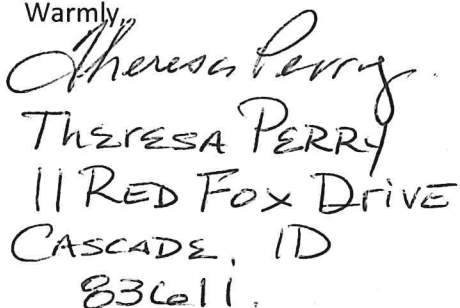 Warmly,
Theresa Perry
THERESA PERRY
11 RED FOX DRIVE
CASCADE, ID
83611.